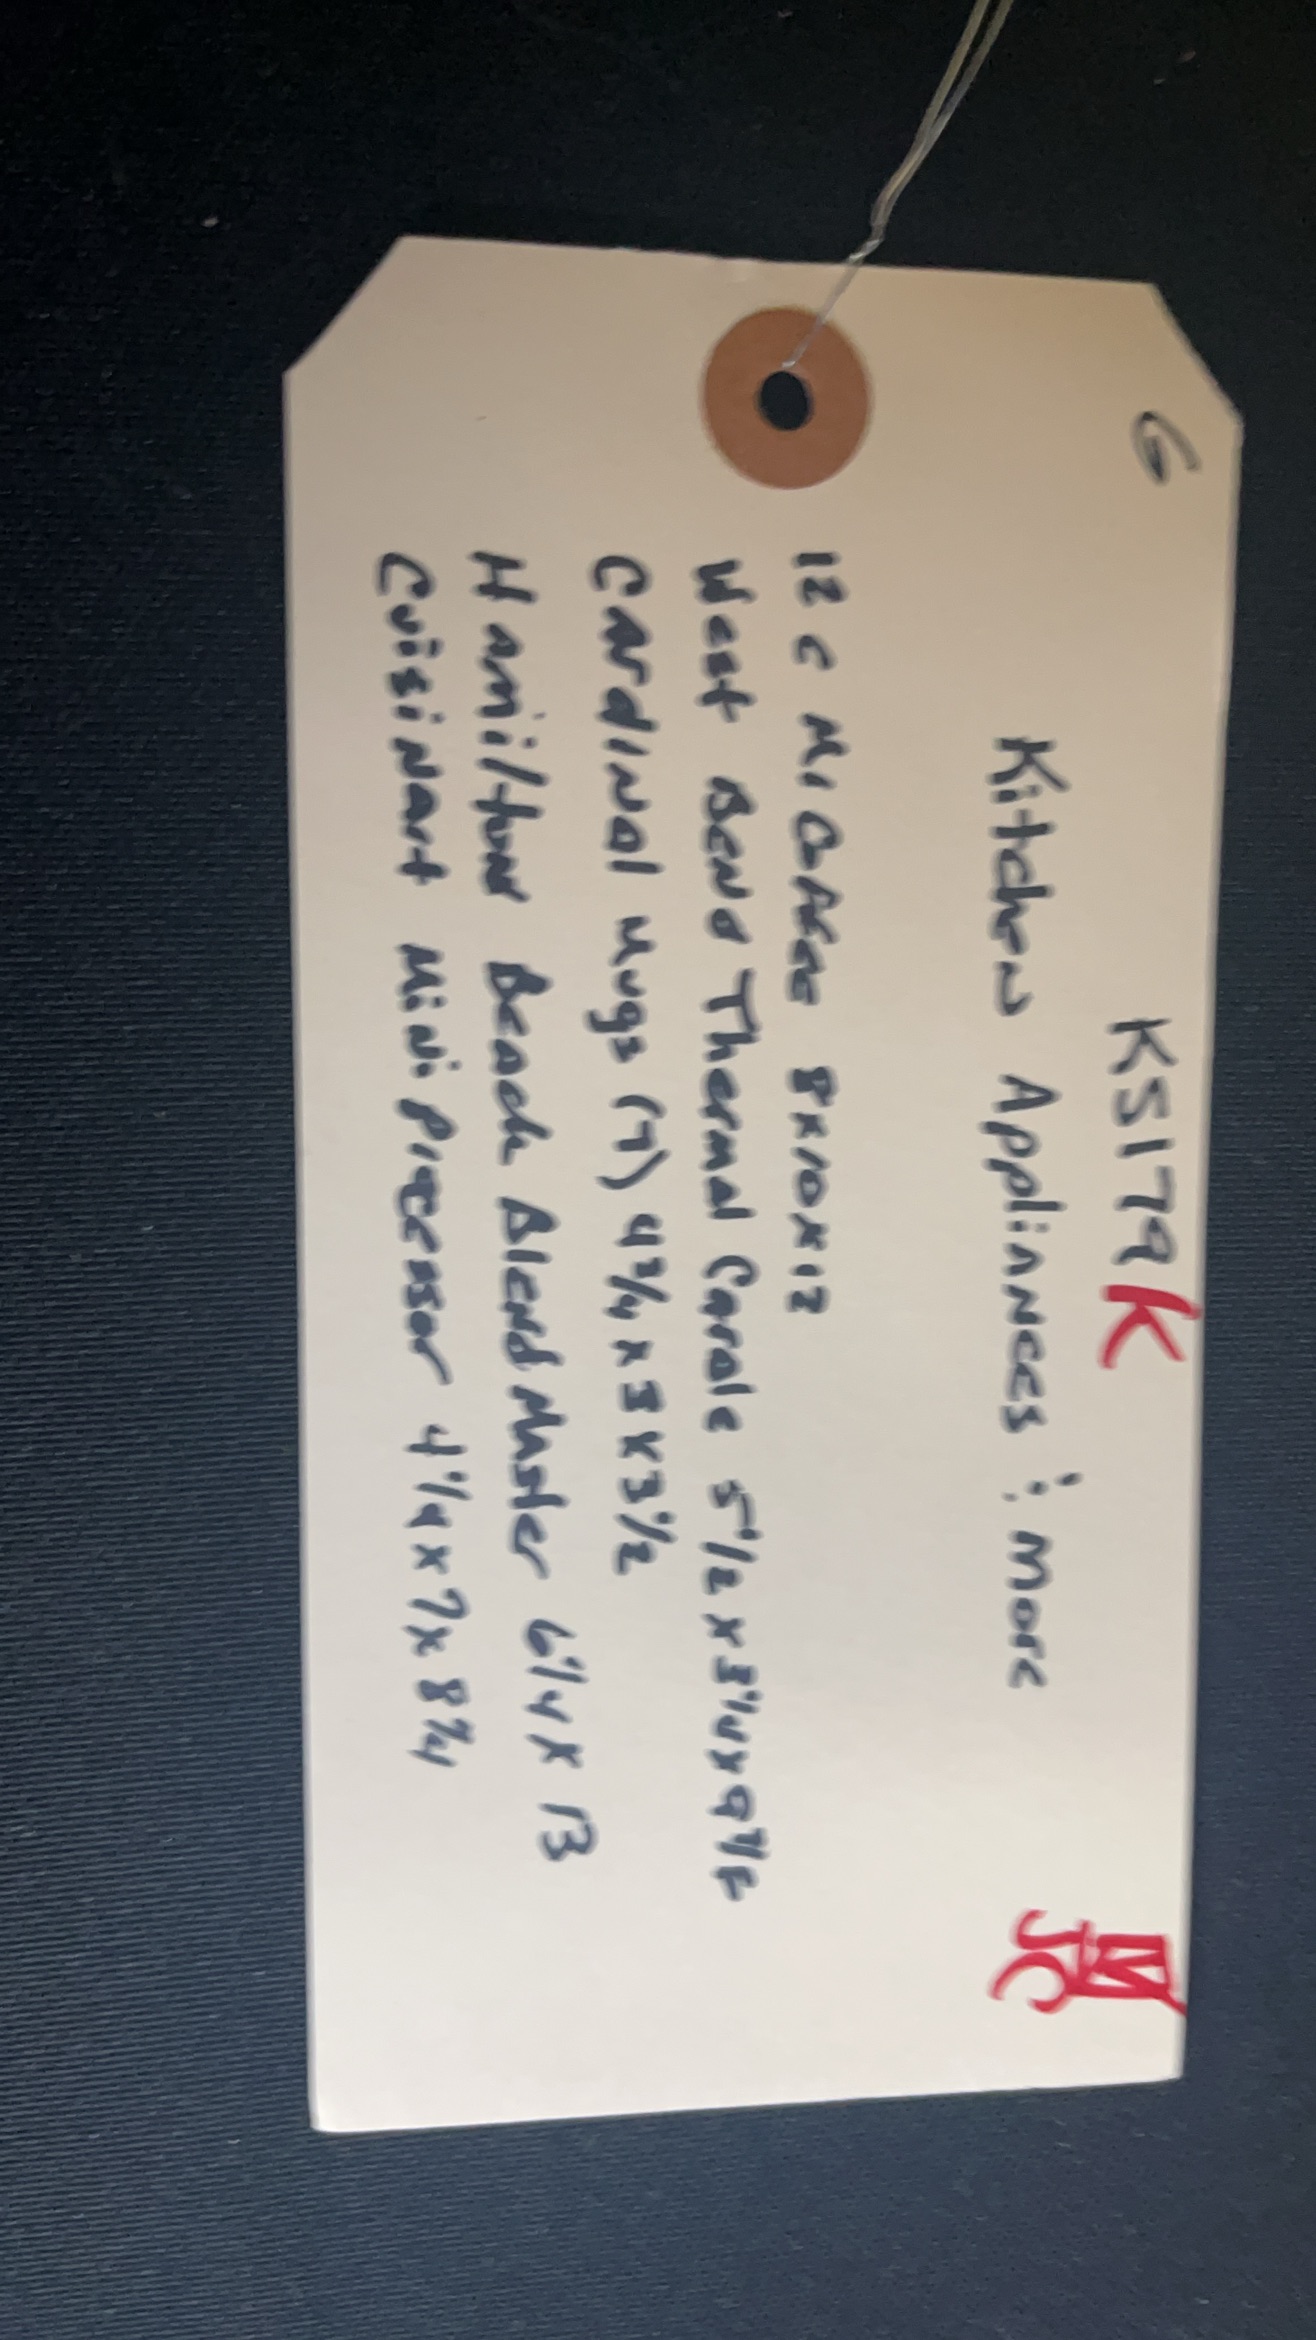 G
KS179 K
Kitchen Appliances & more
JC
12 c Mr Coffee 8x10x12
West Bend Thermal Carafe 5 1/2 x
Cardinal Mugs (7) 4 3/4 x 5 x 3 1/2
Hamilton Beach Blend Master 6 1/4 x 13
Cuisinart Mini Processor 4 1/4 x 7 x 8 3/4